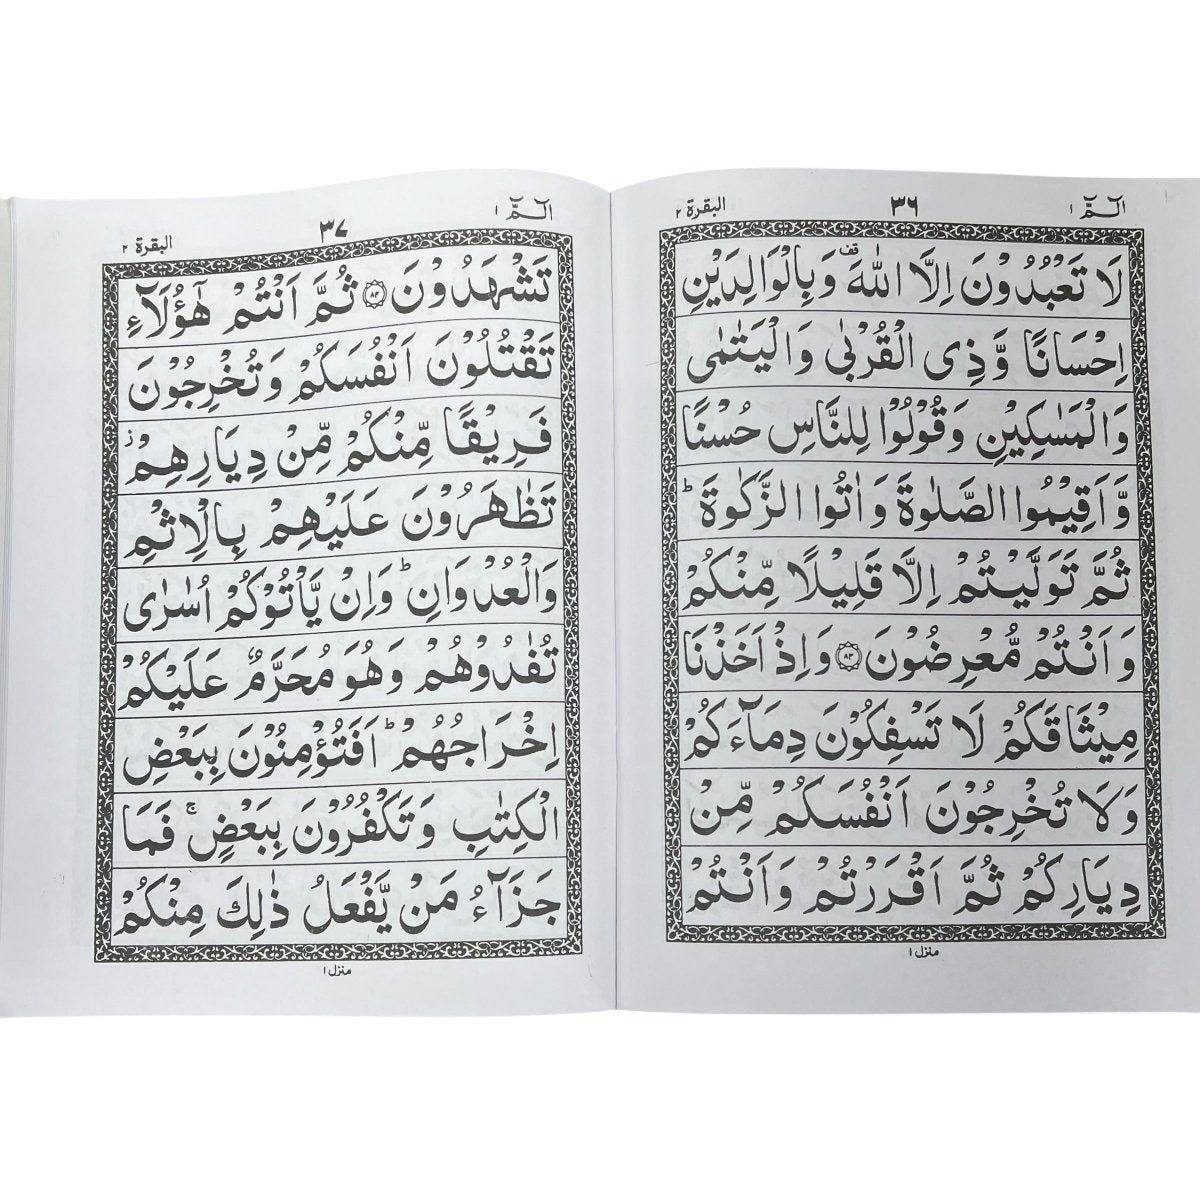 الٓمّٓ ١
٣٦
البقرة ٢
لَا تَعْبُدُوْنَ اِلَّا اللّٰهَ قف وَبِالْوَالِدَيْنِ
اِحْسَانًا وَّذِی الْقُرْبٰی وَالْيَتٰمٰی
وَالْمَسٰكِيْنِ وَقُوْلُوْا لِلنَّاسِ حُسْنًا
وَّاَقِيْمُوا الصَّلٰوةَ وَاٰتُوا الزَّكٰوةَ ؕ
ثُمَّ تَوَلَّيْتُمْ اِلَّا قَلِيْلًا مِّنْكُمْ
وَاَنْتُمْ مُّعْرِضُوْنَ ۝۸۳ وَاِذْ اَخَذْنَا
مِيْثَاقَكُمْ لَا تَسْفِكُوْنَ دِمَآءَكُمْ
وَلَا تُخْرِجُوْنَ اَنْفُسَكُمْ مِّنْ
دِيَارِكُمْ ثُمَّ اَقْرَرْتُمْ وَاَنْتُمْ
منزل ١
الٓمّٓ ١
٣٧
البقرة ٢
تَشْهَدُوْنَ ۝۸۴ ثُمَّ اَنْتُمْ هٰٓؤُلَآءِ
تَقْتُلُوْنَ اَنْفُسَكُمْ وَتُخْرِجُوْنَ
فَرِيْقًا مِّنْكُمْ مِّنْ دِيَارِهِمْ ز
تَظٰهَرُوْنَ عَلَيْهِمْ بِالْاِثْمِ
وَالْعُدْوَانِ ؕ وَاِنْ يَّاْتُوْكُمْ اُسٰرٰی
تُفٰدُوْهُمْ وَهُوَ مُحَرَّمٌ عَلَيْكُمْ
اِخْرَاجُهُمْ ؕ اَفَتُؤْمِنُوْنَ بِبَعْضِ
الْكِتٰبِ وَتَكْفُرُوْنَ بِبَعْضٍ ۚ فَمَا
جَزَآءُ مَنْ يَّفْعَلُ ذٰلِكَ مِنْكُمْ
منزل ١